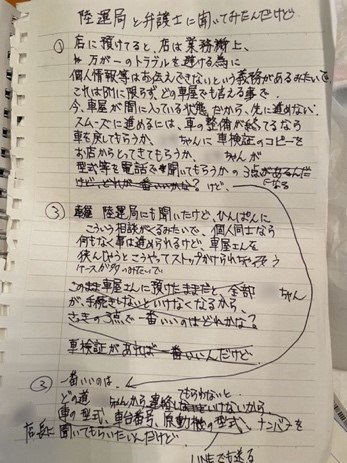 陸運局と弁護士に聞いてみたんだけど
① 店に預けてると、店は業務柄上、
万が一のトラブルを避ける為に
個人情報等はお伝えできないという義務があるみたいで
これは別に限らずどの車屋でも言える事で
今、車屋が間に入ている状態だから、先に進めない。
スムーズに進めるには、車の整備が終ってるなら
車を戻してもらうか、ちゃんに車検証のコピーを
お店からとってきてもらうか、ちゃんが
型式等を電話で聞いてもらうかの3点があるんだ
になる
けど、どれが一番いいかな? けど、
③ 車屋 陸運局にも聞いたけど、ひんぱんに
こういう相談がくるみたいで、個人同士なら
何もなく事は進められるけど、車屋さんを
挟んじゃうとこうやってストップかけられちゃう
ケースが多いみたいで
このまま車屋さんに預けたままだと、全部ちゃん
が、手続きしないといけなくなるから、
さっきの3点で一番いいのはどれかな?
車検証があれば一番いいんだけど
③ 一番いいのは、
でもらわないと
どの道ちゃんから連絡しないといけないから
車の型式、車台番号、原動機の型式、ナンバーを
店長に聞いてもらいたいんだけど
LINEでも送る